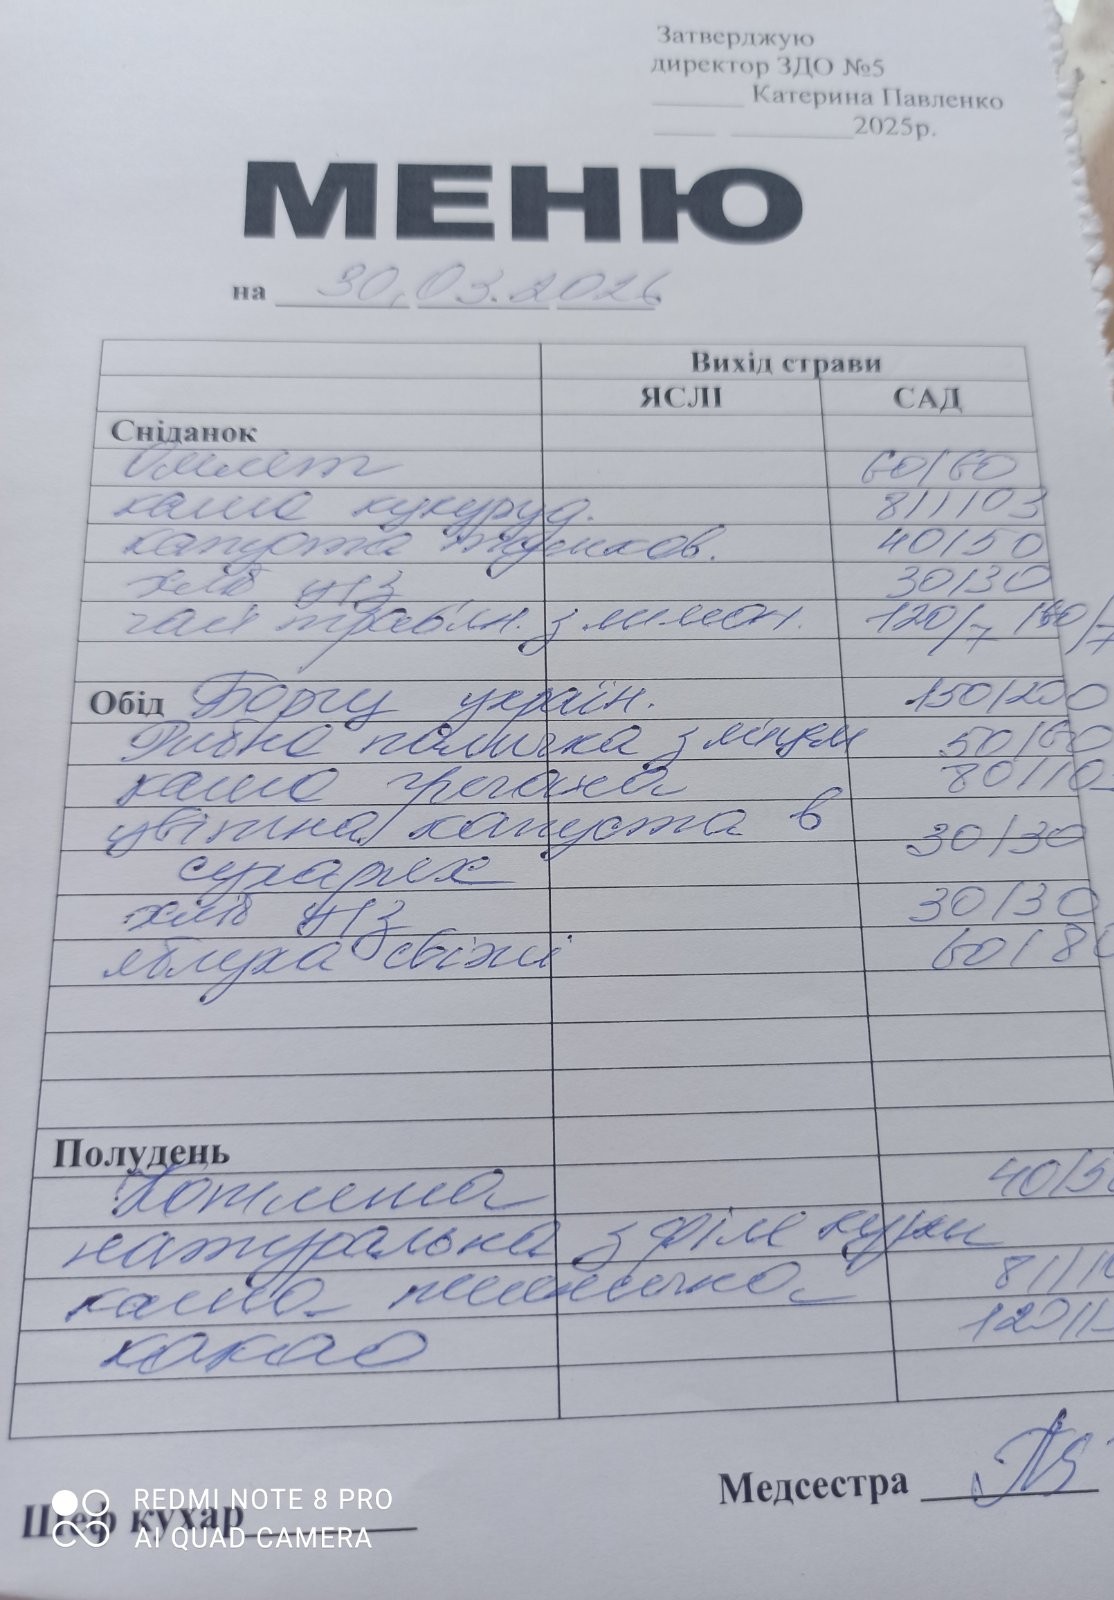 Затверджую
директор ЗДО №5
Катерина Павленко
2025р.
МЕНЮ
на 30.03.2026
Вихід страви
ЯСЛІ САД
Сніданок
Омлет 60/60
каша кукуруд. 81/103
капуста тушков. 40/50
хліб ц/з 30/30
чай трав'ян. з лимон. 120/7 180/7
Обід Борщ україн. 150/200
Рибна паличка з мінтая 50/60
каша гречана 80/10
цвітна капуста в 30/30
сухарях
хліб ц/з 30/30
яблука свіжі 60/80
Полудень
Котлета 40/5
натуральна з філе курки
каша пшенична 81/1
какао 120/1
Медсестра
Шеф кухар
REDMI NOTE 8 PRO
AI QUAD CAMERA